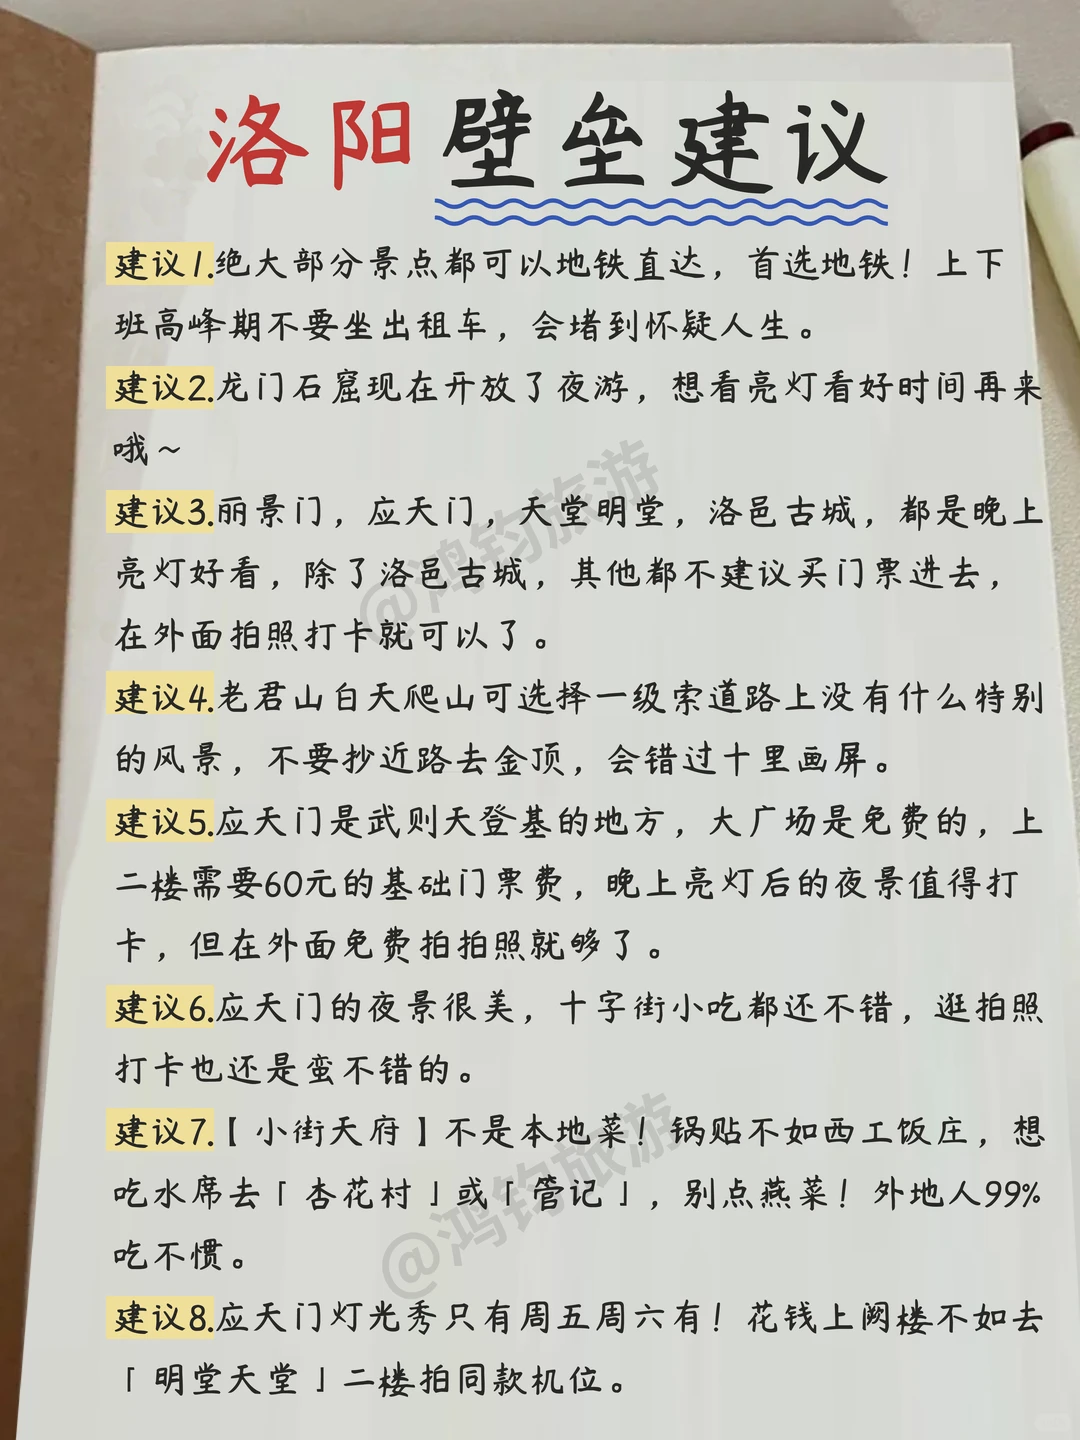 洛阳壁垒建议
建议1.绝大部分景点都可以地铁直达，首选地铁！上下
班高峰期不要坐出租车，会堵到怀疑人生。
建议2.龙门石窟现在开放了夜游，想看亮灯看好时间再来
哦～
建议3.丽景门，应天门，天堂明堂，洛邑古城，都是晚上
亮灯好看，除了洛邑古城，其他都不建议买门票进去，
在外面拍照打卡就可以了。
建议4.老君山白天爬山可选择一级索道路上没有什么特别
的风景，不要抄近路去金顶，会错过十里画屏。
建议5.应天门是武则天登基的地方，大广场是免费的，上
二楼需要60元的基础门票费，晚上亮灯后的夜景值得打
卡，但在外面免费拍拍照就够了。
建议6.应天门的夜景很美，十字街小吃都还不错，逛拍照
打卡也还是蛮不错的。
建议7.【小街天府】不是本地菜！锅贴不如西工饭庄，想
吃水席去「杏花村」或「管记」，别点燕菜！外地人99%
吃不惯。
建议8.应天门灯光秀只有周五周六有！花钱上阙楼不如去
「明堂天堂」二楼拍同款机位。
@鸿钧旅游
@鸿钧旅游